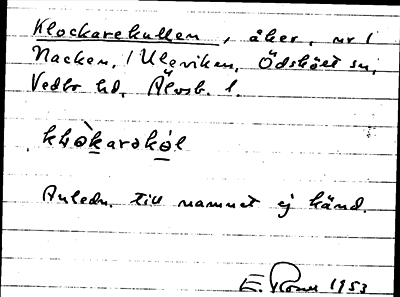 Klockarekullen, åker, nr 1
Nacken, / Uleviken, Ödskölt sn,
Vedbo hd, Älvsb. l.
klɷ̀karəkɵl
Anledn. till namnet ej känd.
E. 1953